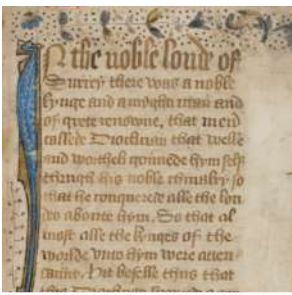 In the noble londe of
Surrey there was a noble
kynge and a myghty man and
of grete renowne, that men
callede Dioclician that welle
and worthely gouernede hym self
thurugh his noble chiualry so
that he conquerede alle the lon
des aboute hym. So that al
most alle the kynges of the
worlde vnto hym were atten
daunt. hit befelle thus that
this Dioclician